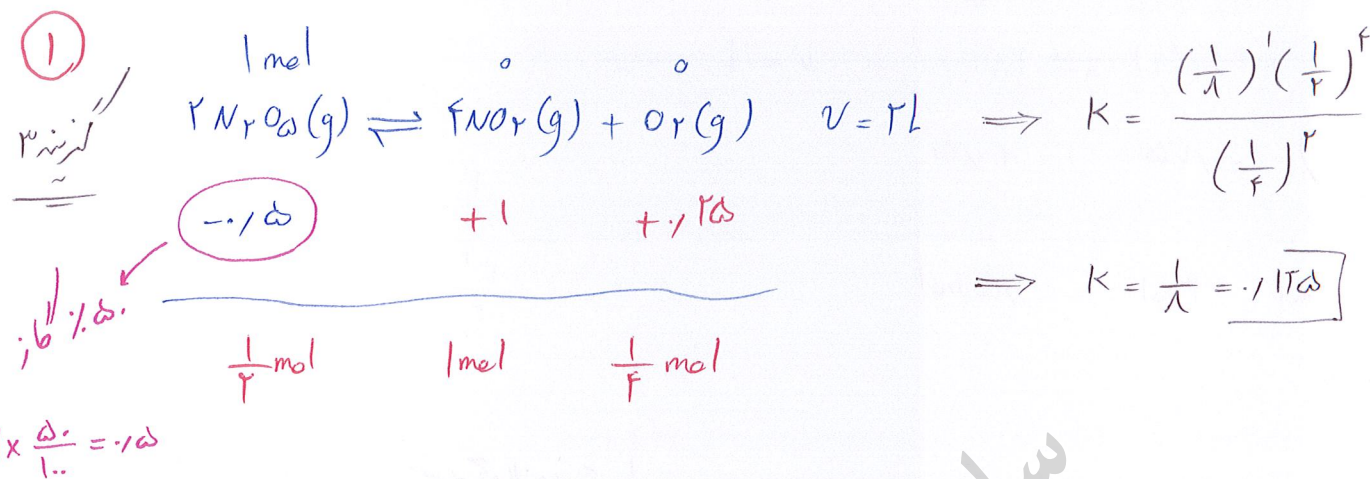 ۱
گزینه ۳
1 mol ۰ ۰
۲N۲O۵(g) ⇌ ۴NO۲(g) + O۲(g) V = ۲L ⟹ K = (۱/۸)^۱(۱/۲)^۴ / (۱/۴)^۲
-۰/۵ +۱ +۰/۲۵
۵۰٪
⟹ K = ۱/۸ = ۰/۱۲۵
۱/۲ mol 1 mol ۱/۴ mol
× ۵۰/۱۰۰ = ۰/۵